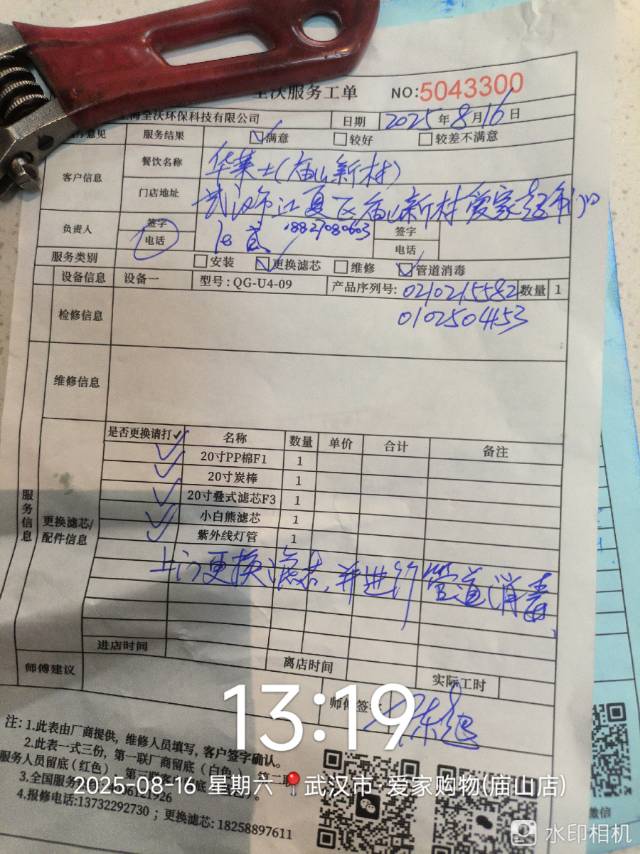 沃服务工单 NO:5043300
沃环保科技有限公司 日期 2025年8月16日
意见 服务结果 满意 较好 较差不满意
客户信息 餐饮名称 华莱士(庙山新村)
门店地址 武汉市江夏区庙山新村爱家超市
负责人 签字 签字
电话 18827080603 电话
服务类别 安装 更换滤芯 维修 管道消毒
设备信息 设备一 型号:QG-U4-09 产品序列号: 0210215582 数量 1
0102504153
检修信息
维修信息
服务信息
更换滤芯/配件信息
是否更换请打✓ 名称 数量 单价 合计 备注
✓ 20寸PP棉F1 1
✓ 20寸炭棒 1
✓ 20寸叠式滤芯F3 1
✓ 小白熊滤芯 1
✓ 紫外线灯管 1
上门更换滤芯,并进行管道消毒
进店时间
师傅建议 离店时间 实际工时
师傅签
13:19
注: 1.此表由厂商提供, 维修人员填写, 客户签字确认。
2.此表一式三份, 第一联厂商留底(白色)
服务人员留底(红色)
3.全国服务
2025-08-16 星期六 武汉市·爱家购物(庙山店)
4.报修电话:13732292730 ; 更换滤芯: 18258897611
微信
水印相机